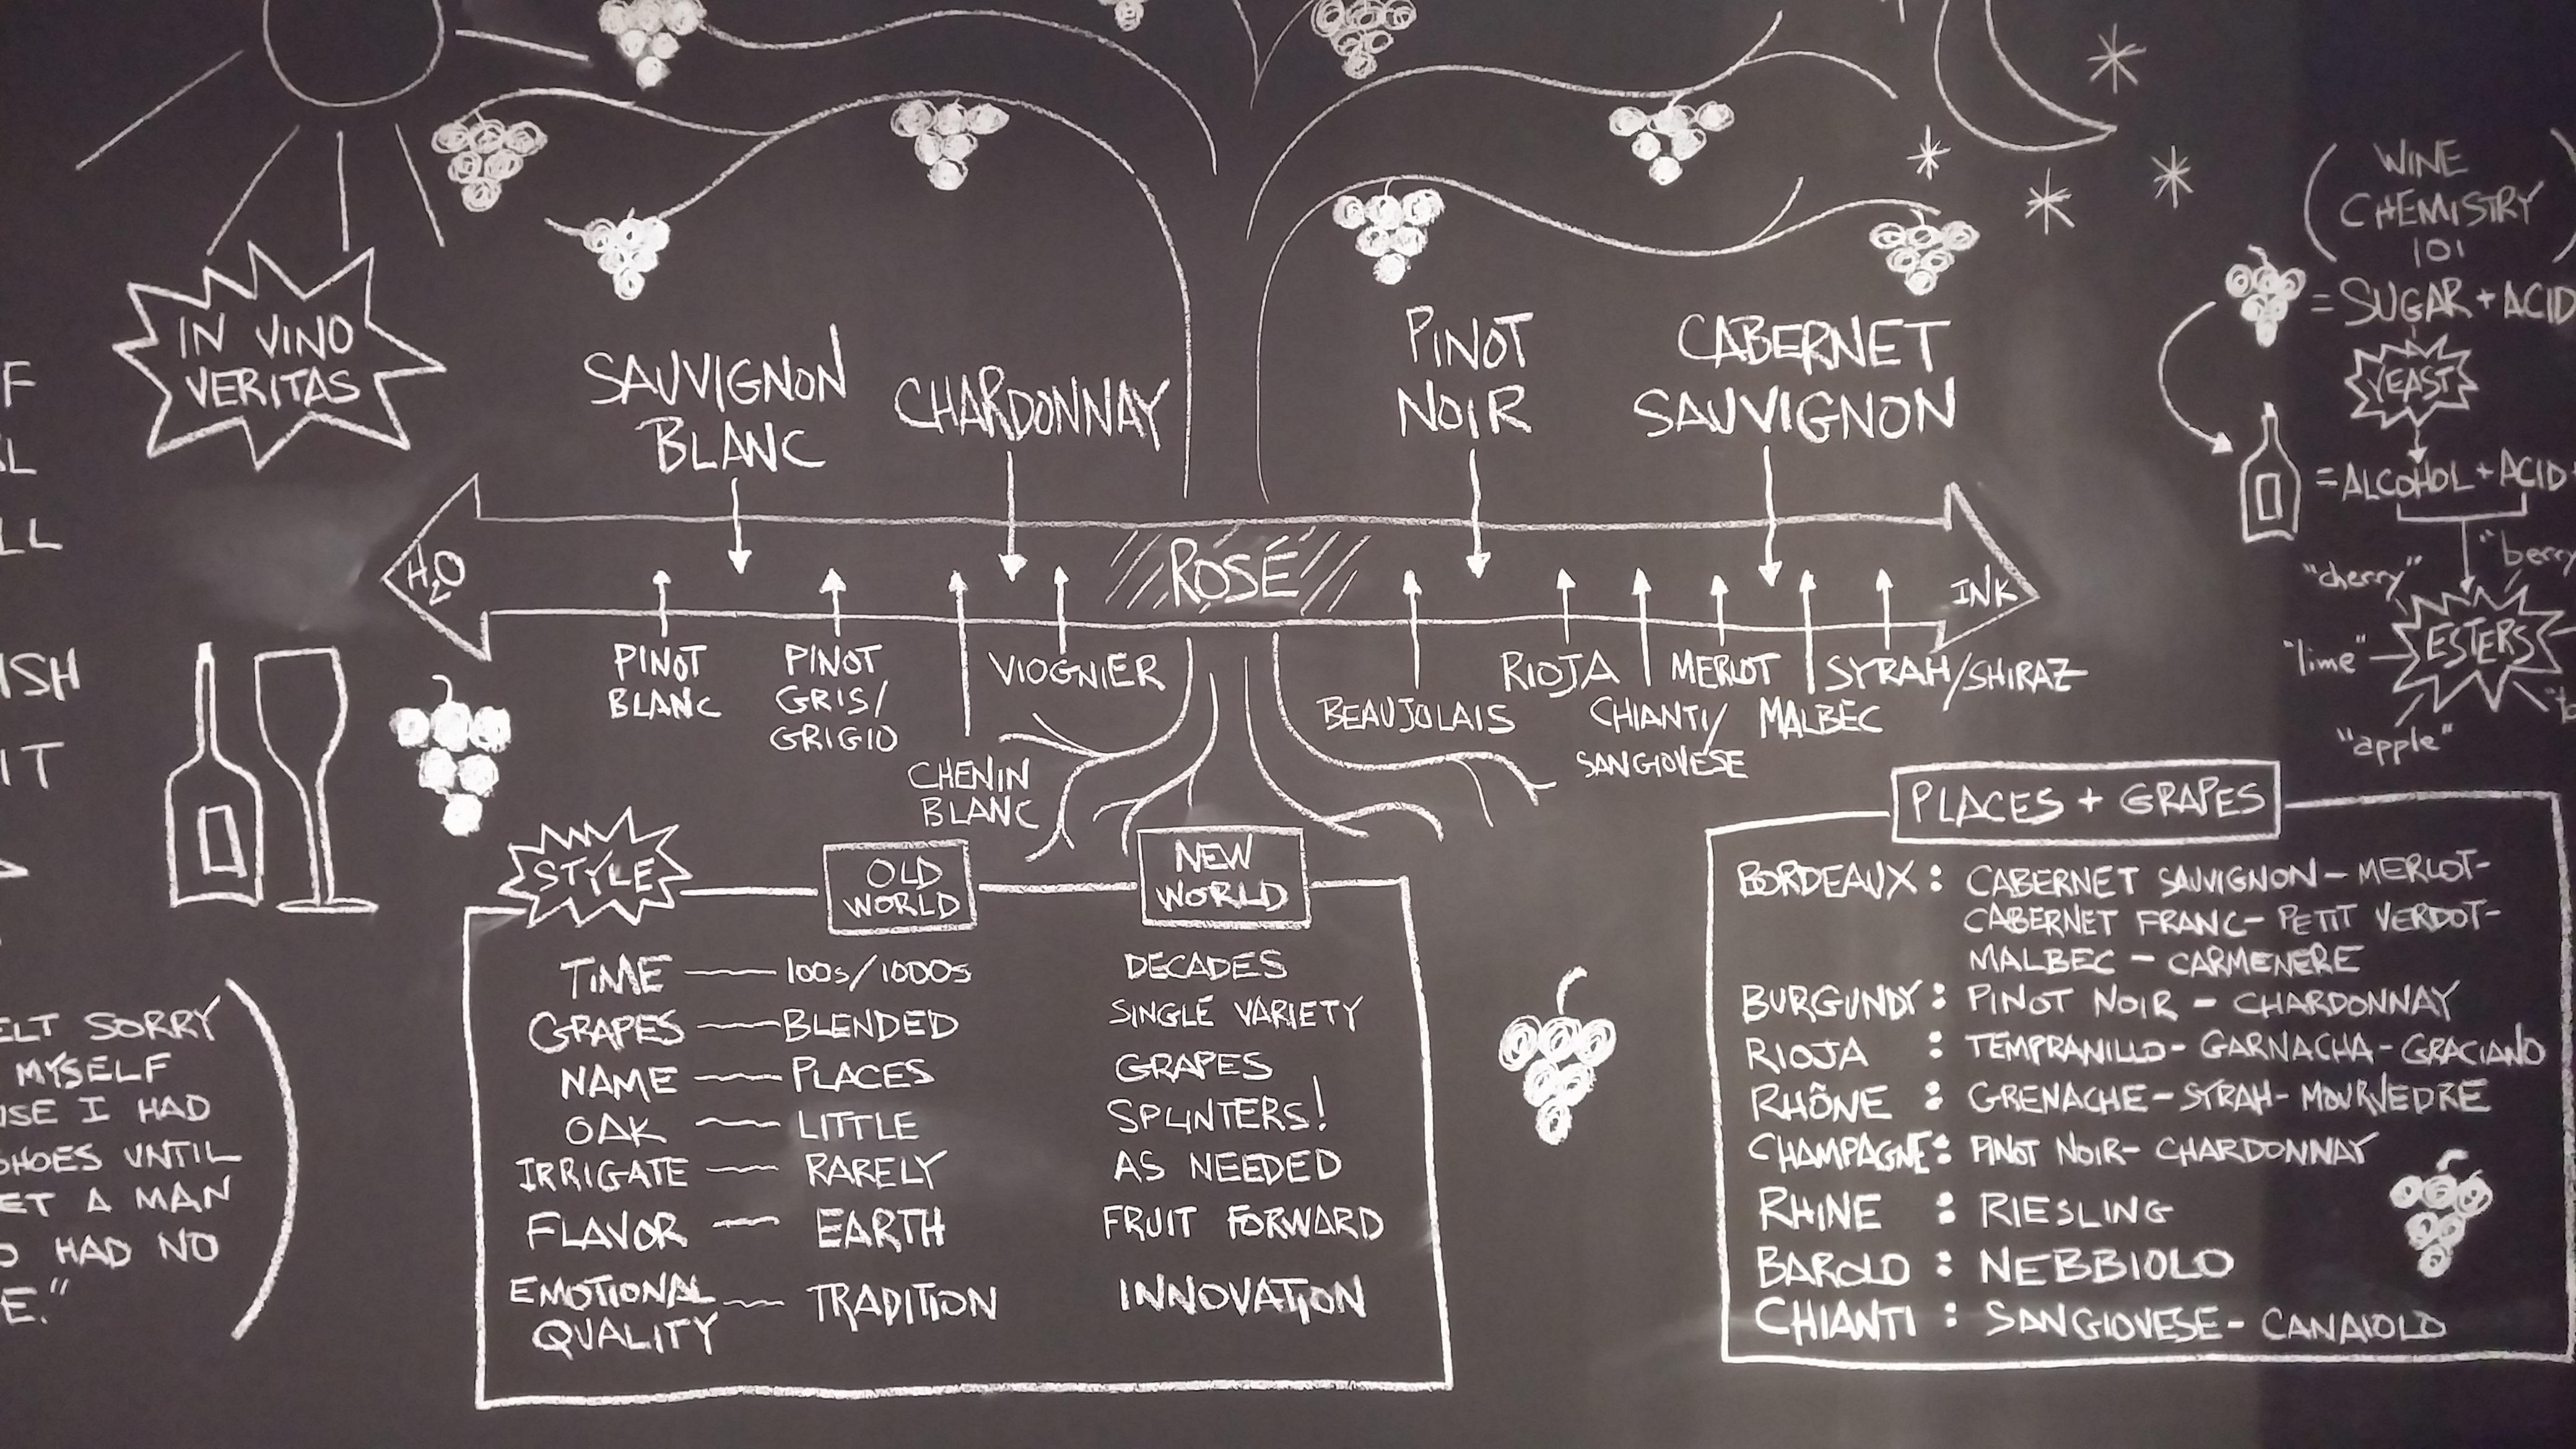 IN VINO
VERITAS
SAUVIGNON
BLANC
CHARDONNAY
PINOT
NOIR
CABERNET
SAUVIGNON
H₂O
ROSÉ
INK
PINOT
BLANC
PINOT
GRIS/
GRIGIO
CHENIN
BLANC
VIOGNIER
BEAUJOLAIS
RIOJA
CHIANTI/
SANGIOVESE
MERLOT
MALBEC
SYRAH/SHIRAZ
WINE
CHEMISTRY
101
= SUGAR + ACID
YEAST
= ALCOHOL + ACID
"cherry"
"berry
"lime"
ESTERS
"apple"
F
LL
ISH
IT
ELT SORRY
MYSELF
USE I HAD
SHOES UNTIL
ET A MAN
O HAD NO
E."
STYLE
OLD
WORLD
NEW
WORLD
TIME — 100s/1000s DECADES
GRAPES — BLENDED SINGLE VARIETY
NAME — PLACES GRAPES
OAK — LITTLE SPLINTERS!
IRRIGATE — RARELY AS NEEDED
FLAVOR — EARTH FRUIT FORWARD
EMOTIONAL
QUALITY — TRADITION INNOVATION
PLACES + GRAPES
BORDEAUX : CABERNET SAUVIGNON - MERLOT -
CABERNET FRANC - PETIT VERDOT -
MALBEC - CARMENERE
BURGUNDY : PINOT NOIR - CHARDONNAY
RIOJA : TEMPRANILLO - GARNACHA - GRACIANO
RHÔNE : GRENACHE - SYRAH - MOURVEDRE
CHAMPAGNE : PINOT NOIR - CHARDONNAY
RHINE : RIESLING
BAROLO : NEBBIOLO
CHIANTI : SANGIOVESE - CANAIOLO